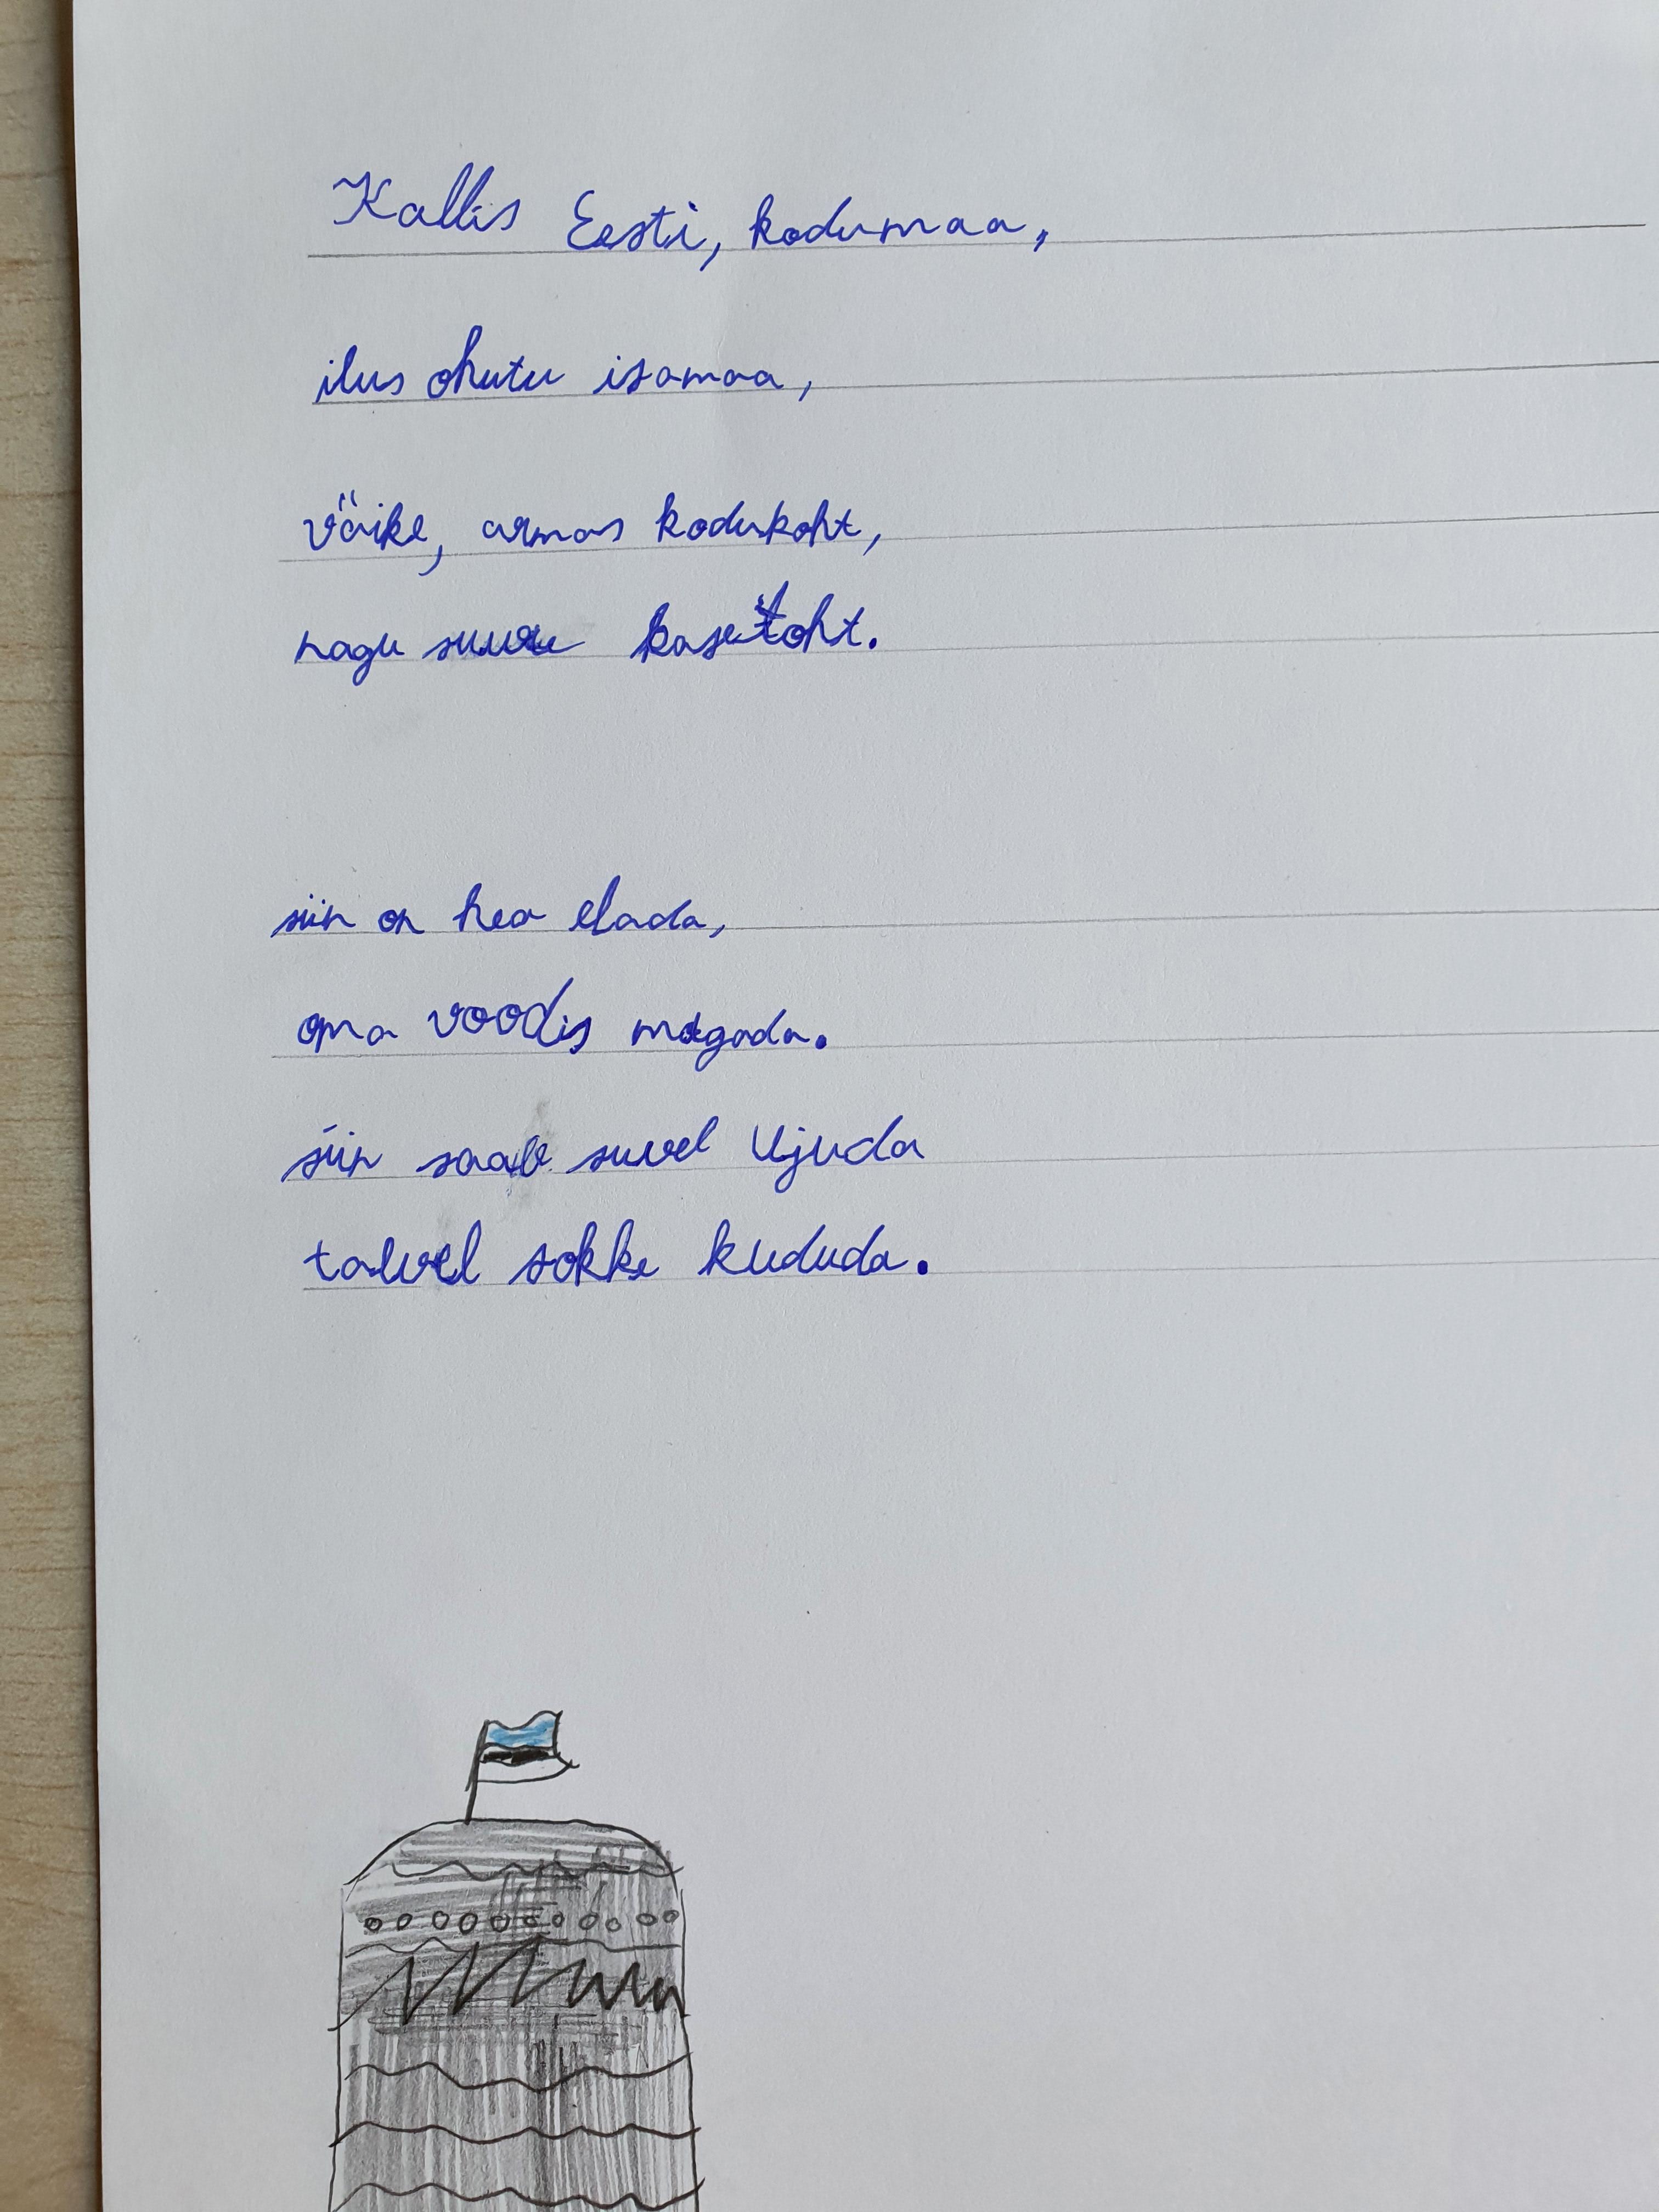 Kallis Eesti, kodumaa,
ilus ohutu isamaa,
väike, armas kodukoht,
nagu suure kasetoht.
siin on hea elada,
oma voodis magada.
siin saab suvel Ujuda
talvel sokke kududa.